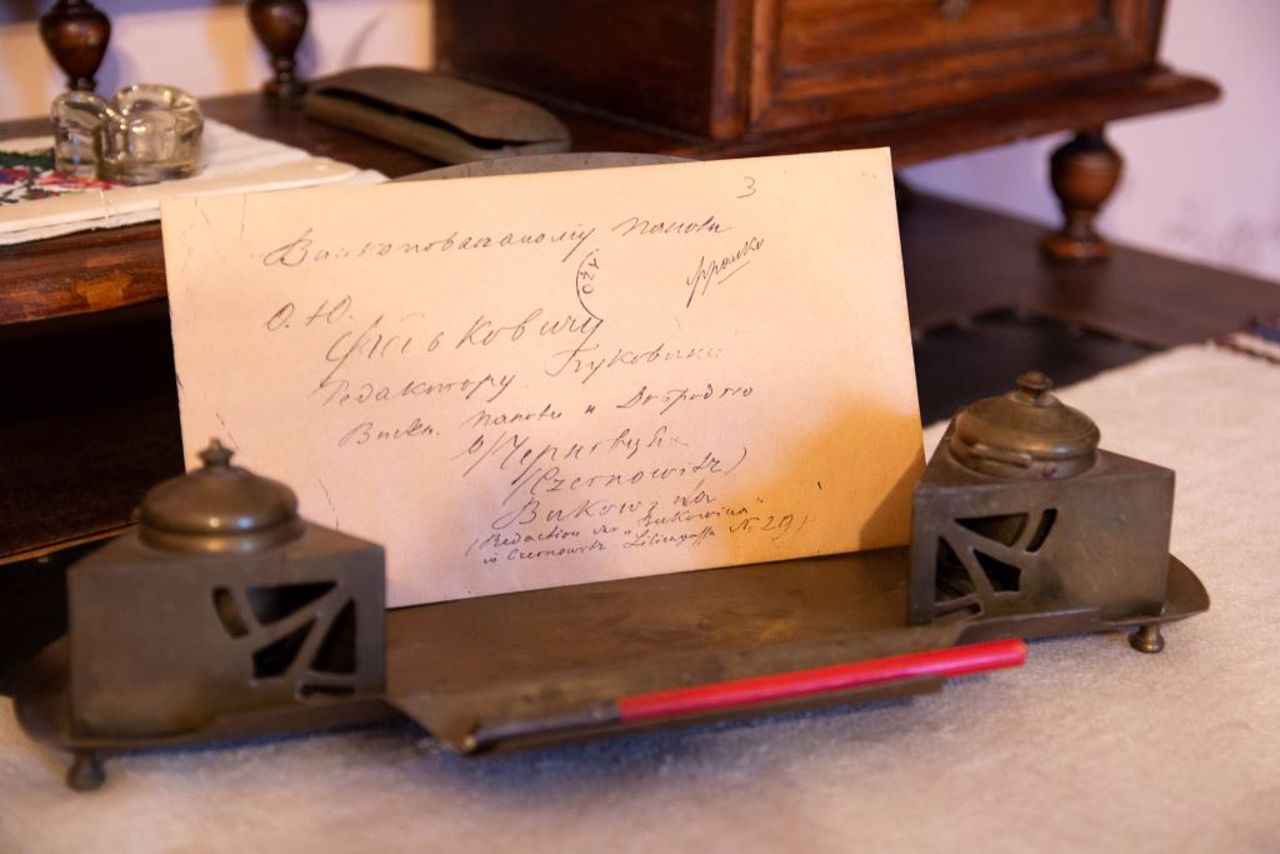 3
Високоповажаному Панови
Франко
О. Ю.
Федьковичу
Редактору Буковини
Панови и Добродію
в/Чернівцях
(Czernowitz)
Bukowina
(Redaction der "Bukowina"
in Czernowitz Liliengasse N. 29)